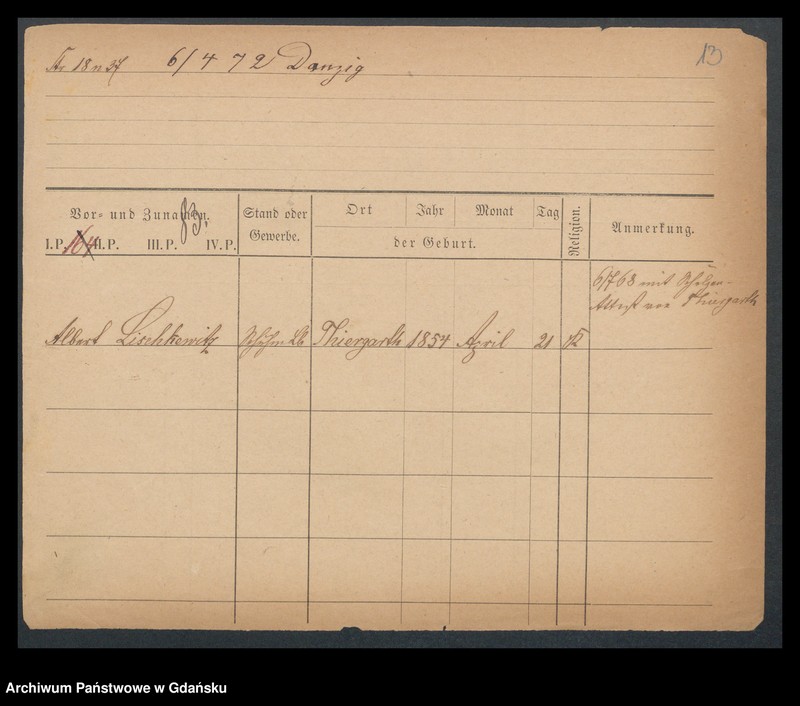 18 n 27 6/4 72 Danzig
13
Vor= und Zunamen.
83.
I.P. 164 II.P. III.P. IV.P.
Stand oder
Gewerbe.
Ort Jahr Monat Tag
der Geburt.
Religion.
Anmerkung.
6/7 68 mit Schulzen-
Attest von Thiergarth
Albert Lischkewitz Thiergarth 1854 April 21 K
Archiwum Państwowe w Gdańsku